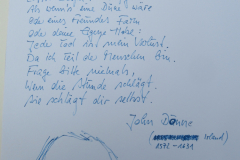 Als wenn's eine Düne wäre
Oder eines Freundes Farm
Oder deine Eigene Habe:
Jeder Tod ist mein Verlust.
Da ich Teil der Menschen bin.
Frage bitte niemals,
Wem die Stunde schlägt.
Sie schlägt dir selbst.
John Donne
( Irland)
1572 - 1631